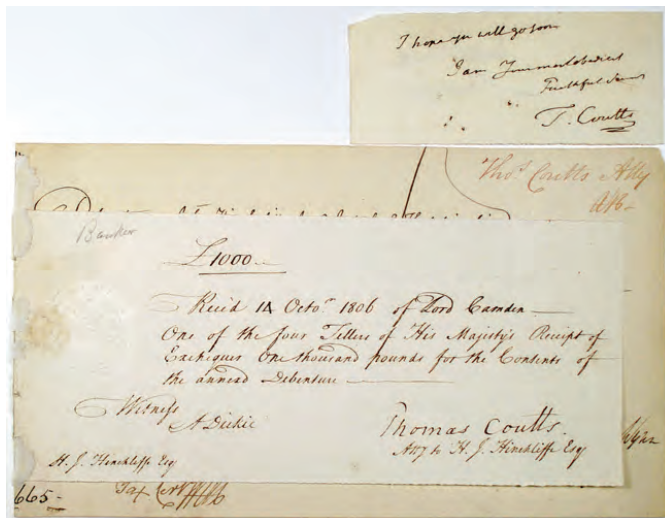 I hope you will go soon
I am Your most obedient
Faithful
T. Coutts
Thos. Coutts Atty
Banker
£1000
Rec'd 14 Octor. 1806 of Lord Camden
One of the four Tellers of His Majesty's Receipt of
Exchequer One thousand pounds for the Contents of
the annexed Debenture
Witness
A Dickie
Thomas Coutts.
Atty to H. J. Hinchliffe Esq
H. J. Hinchliffe Esq
665-